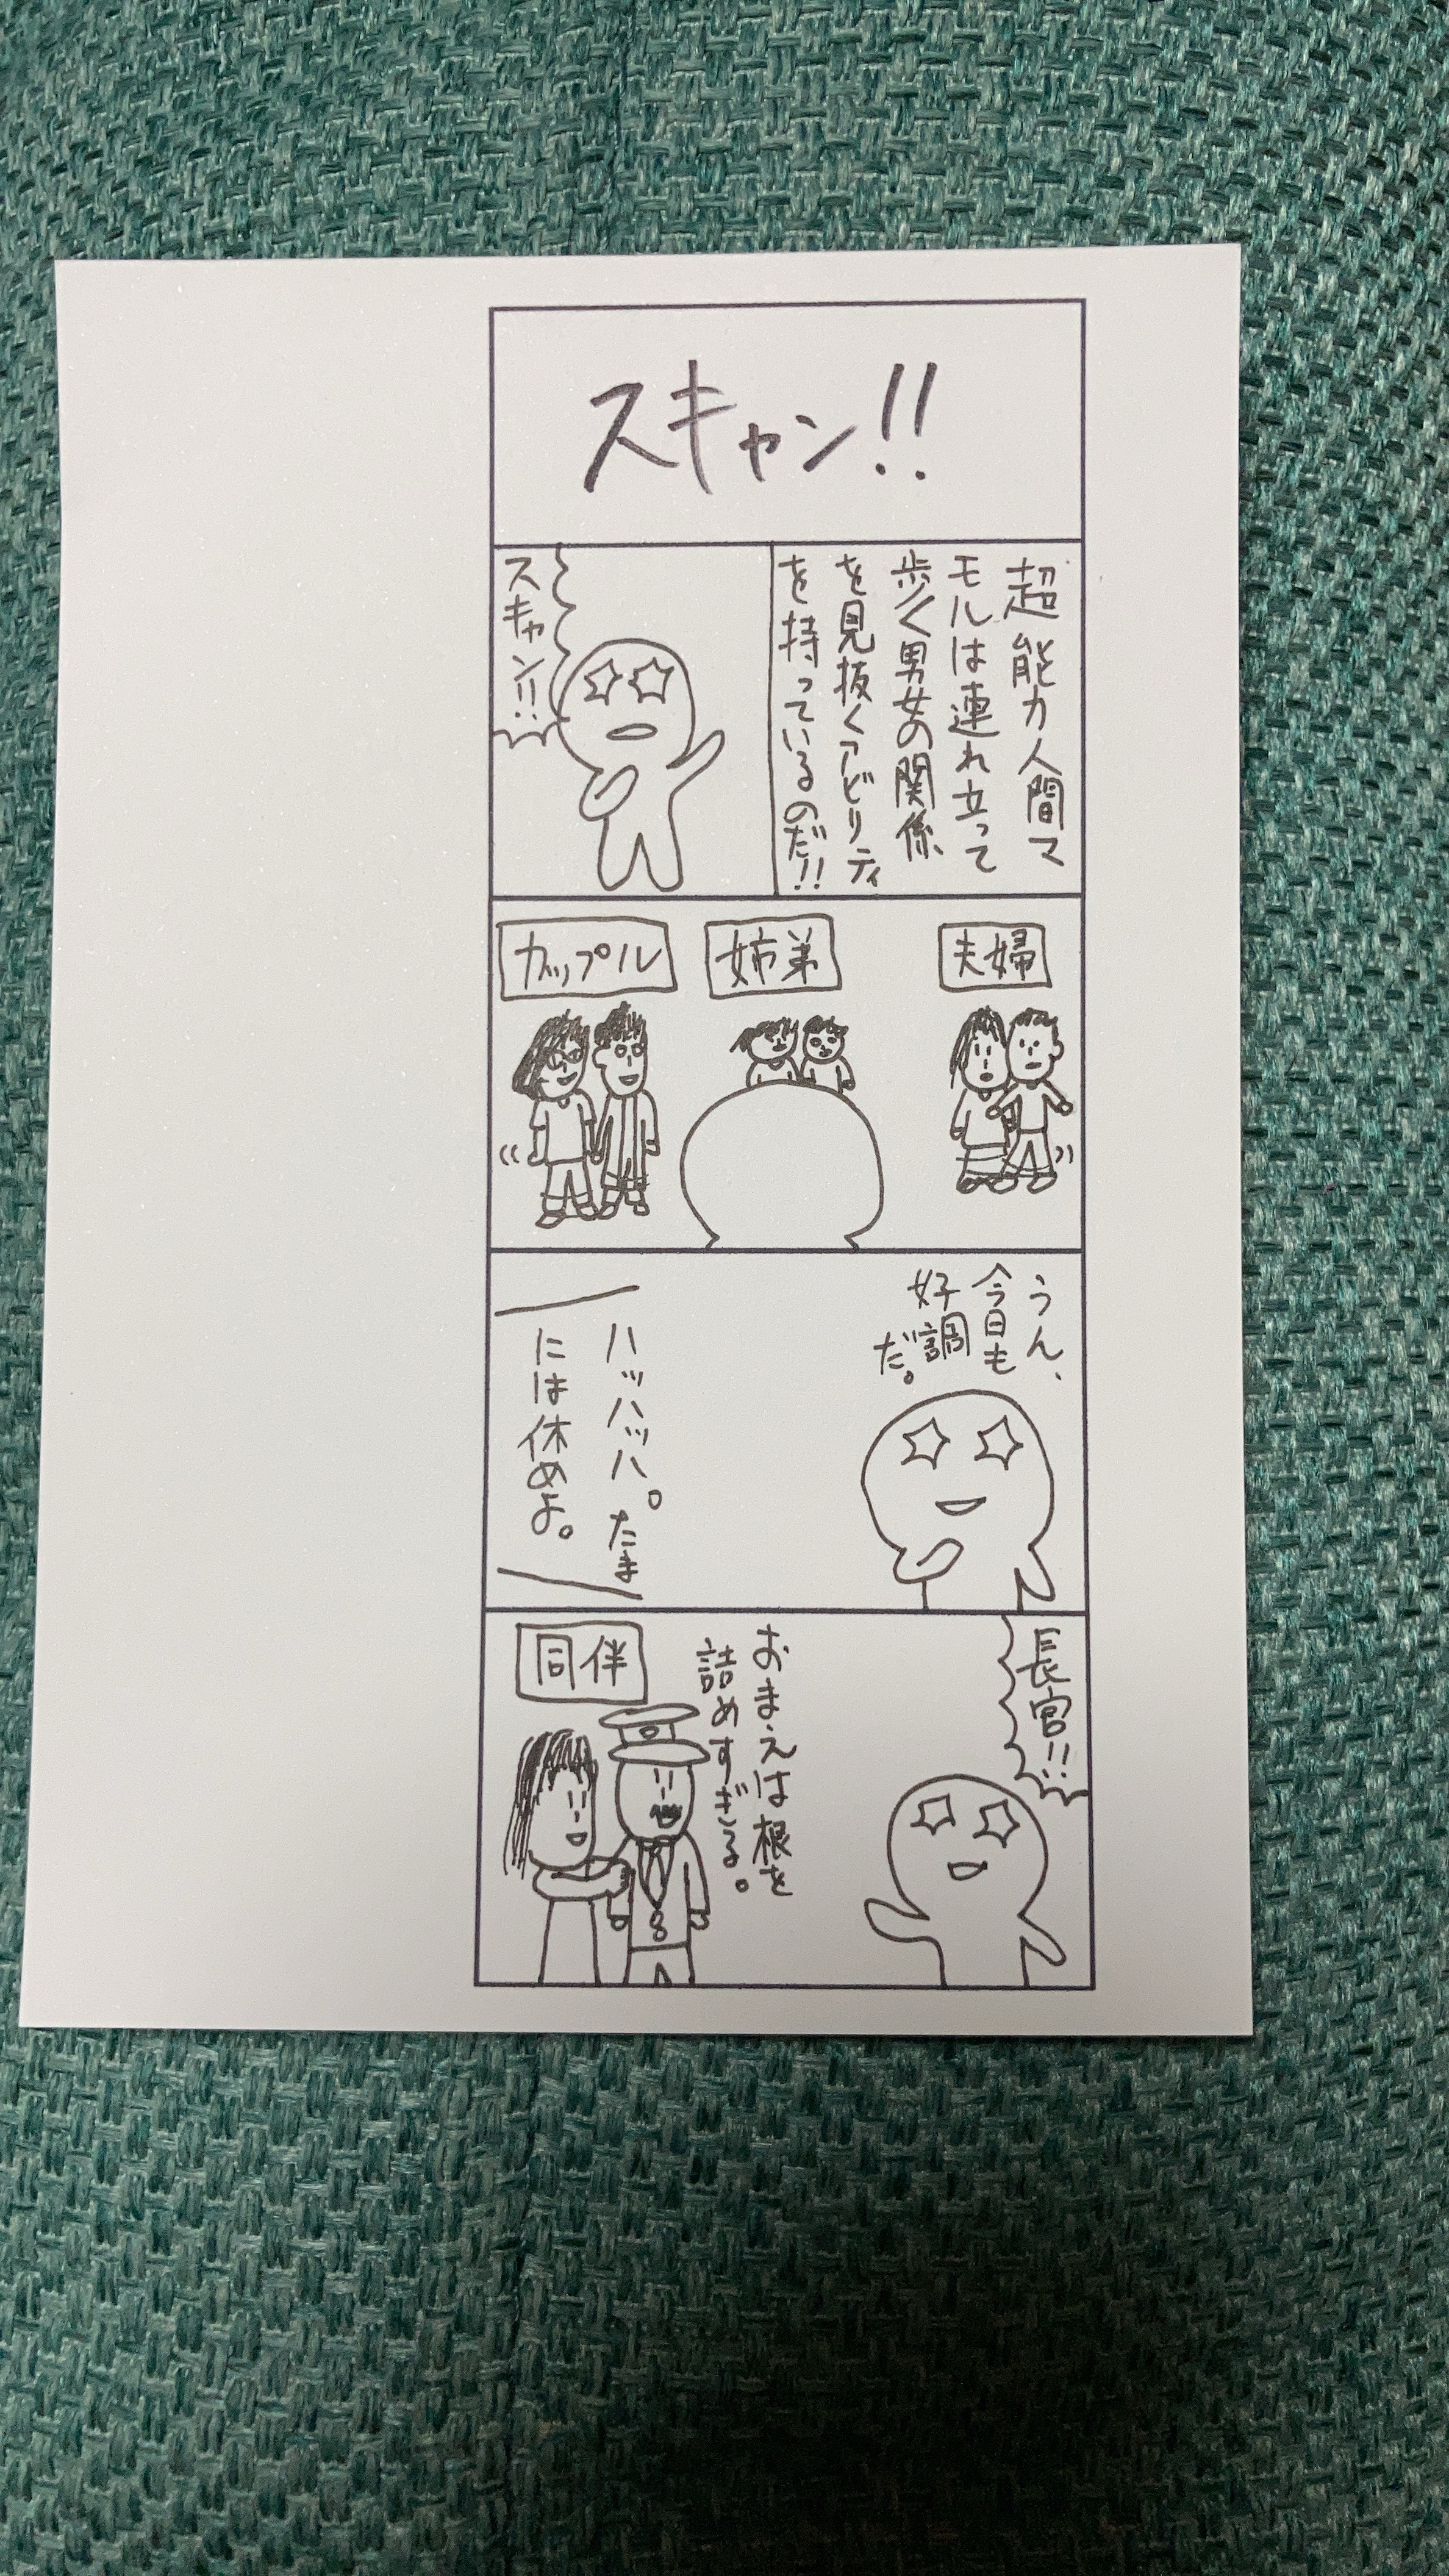 スキャン!!
超能力人間マ
モルは連れ立って
歩く男女の関係
を見抜くアビリティ
を持っているのだ!!
スキャン!!
夫婦
姉弟
カップル
うん、
今日も
好調
だ。
ハッハッハ。たま
には休めよ。
長官!!
おまえは根を
詰めすぎる。
同伴